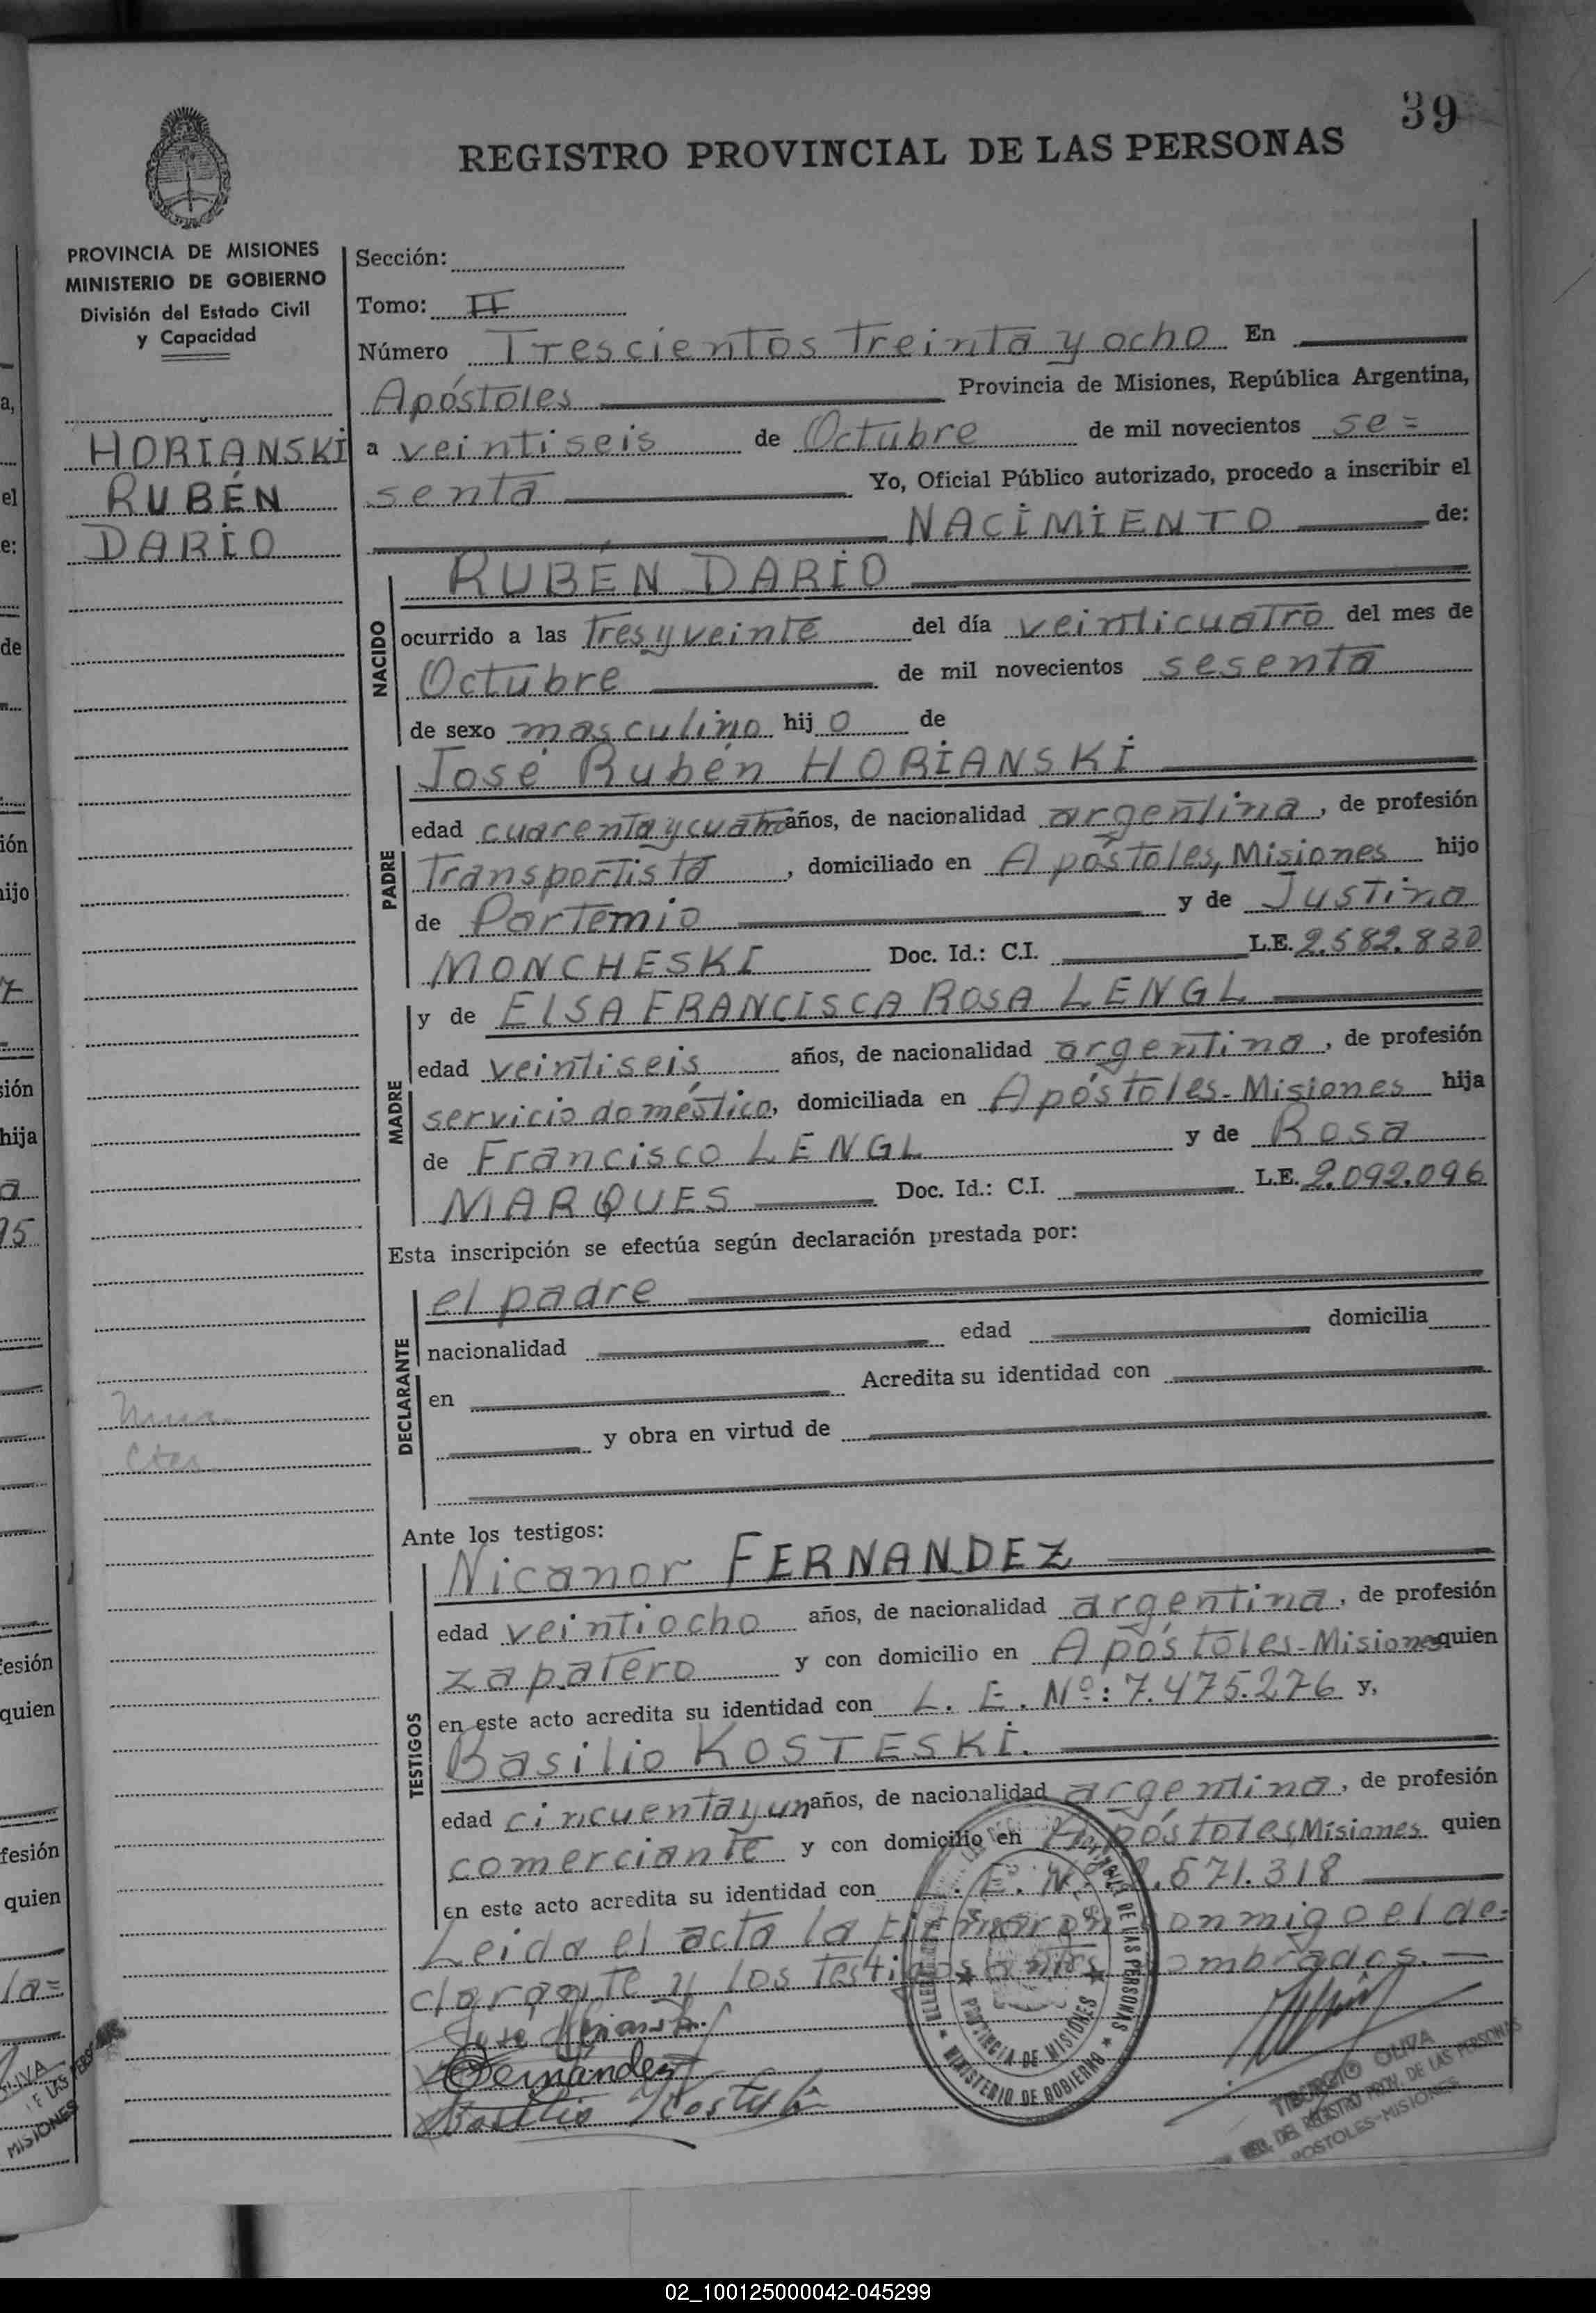 39
REGISTRO PROVINCIAL DE LAS PERSONAS
PROVINCIA DE MISIONES
MINISTERIO DE GOBIERNO
División del Estado Civil
y Capacidad
HORIANSKI
RUBÉN
DARIO
Sección:
Tomo: II
Número Trescientos Treinta y ocho En
Apóstoles Provincia de Misiones, República Argentina,
a veintiseis de Octubre de mil novecientos se=
senta Yo, Oficial Público autorizado, procedo a inscribir el
NACIMIENTO de:
NACIDO
RUBÉN DARIO
ocurrido a las Tres y veinte del día veinticuatro del mes de
Octubre de mil novecientos sesenta
de sexo masculino hijo de
PADRE
José Rubén HORIANSKI
edad cuarenta y cuatro años, de nacionalidad argentina, de profesión
Transportista, domiciliado en Apóstoles, Misiones hijo
de Partemio y de Justina
MONCHESKI Doc. Id.: C.I. L.E. 2.582.830
MADRE
y de ELSA FRANCISCA ROSA LENGL
edad veintiseis años, de nacionalidad argentina, de profesión
servicio doméstico, domiciliada en Apóstoles - Misiones hija
de Francisco LENGL y de Rosa
MARQUES Doc. Id.: C.I. L.E. 2.092.096
Esta inscripción se efectúa según declaración prestada por:
DECLARANTE
el padre
nacionalidad edad domicilia
en Acredita su identidad con
y obra en virtud de
Ante los testigos:
TESTIGOS
Nicanor FERNANDEZ
edad veintiocho años, de nacionalidad argentina, de profesión
zapatero y con domicilio en Apóstoles - Misiones quien
en este acto acredita su identidad con L. E. Nº: 7.475.276 y,
Basilio KOSTESKI.
edad cincuenta y un años, de nacionalidad argentina, de profesión
comerciante y con domicilio en Apóstoles, Misiones quien
en este acto acredita su identidad con L. E. Nº .671.318
Leida el acta la firmaron conmigo el de=
clarante y los testigos antes nombrados.
Fernández
Basilio Kosteski
PROVINCIA DE MISIONES
MINISTERIO DE GOBIERNO
DE LAS PERSONAS
TIBURCIO OLIVA
DEL REGISTRO PROV. DE LAS PERSONAS
APOSTOLES-MISIONES
02_100125000042-045299